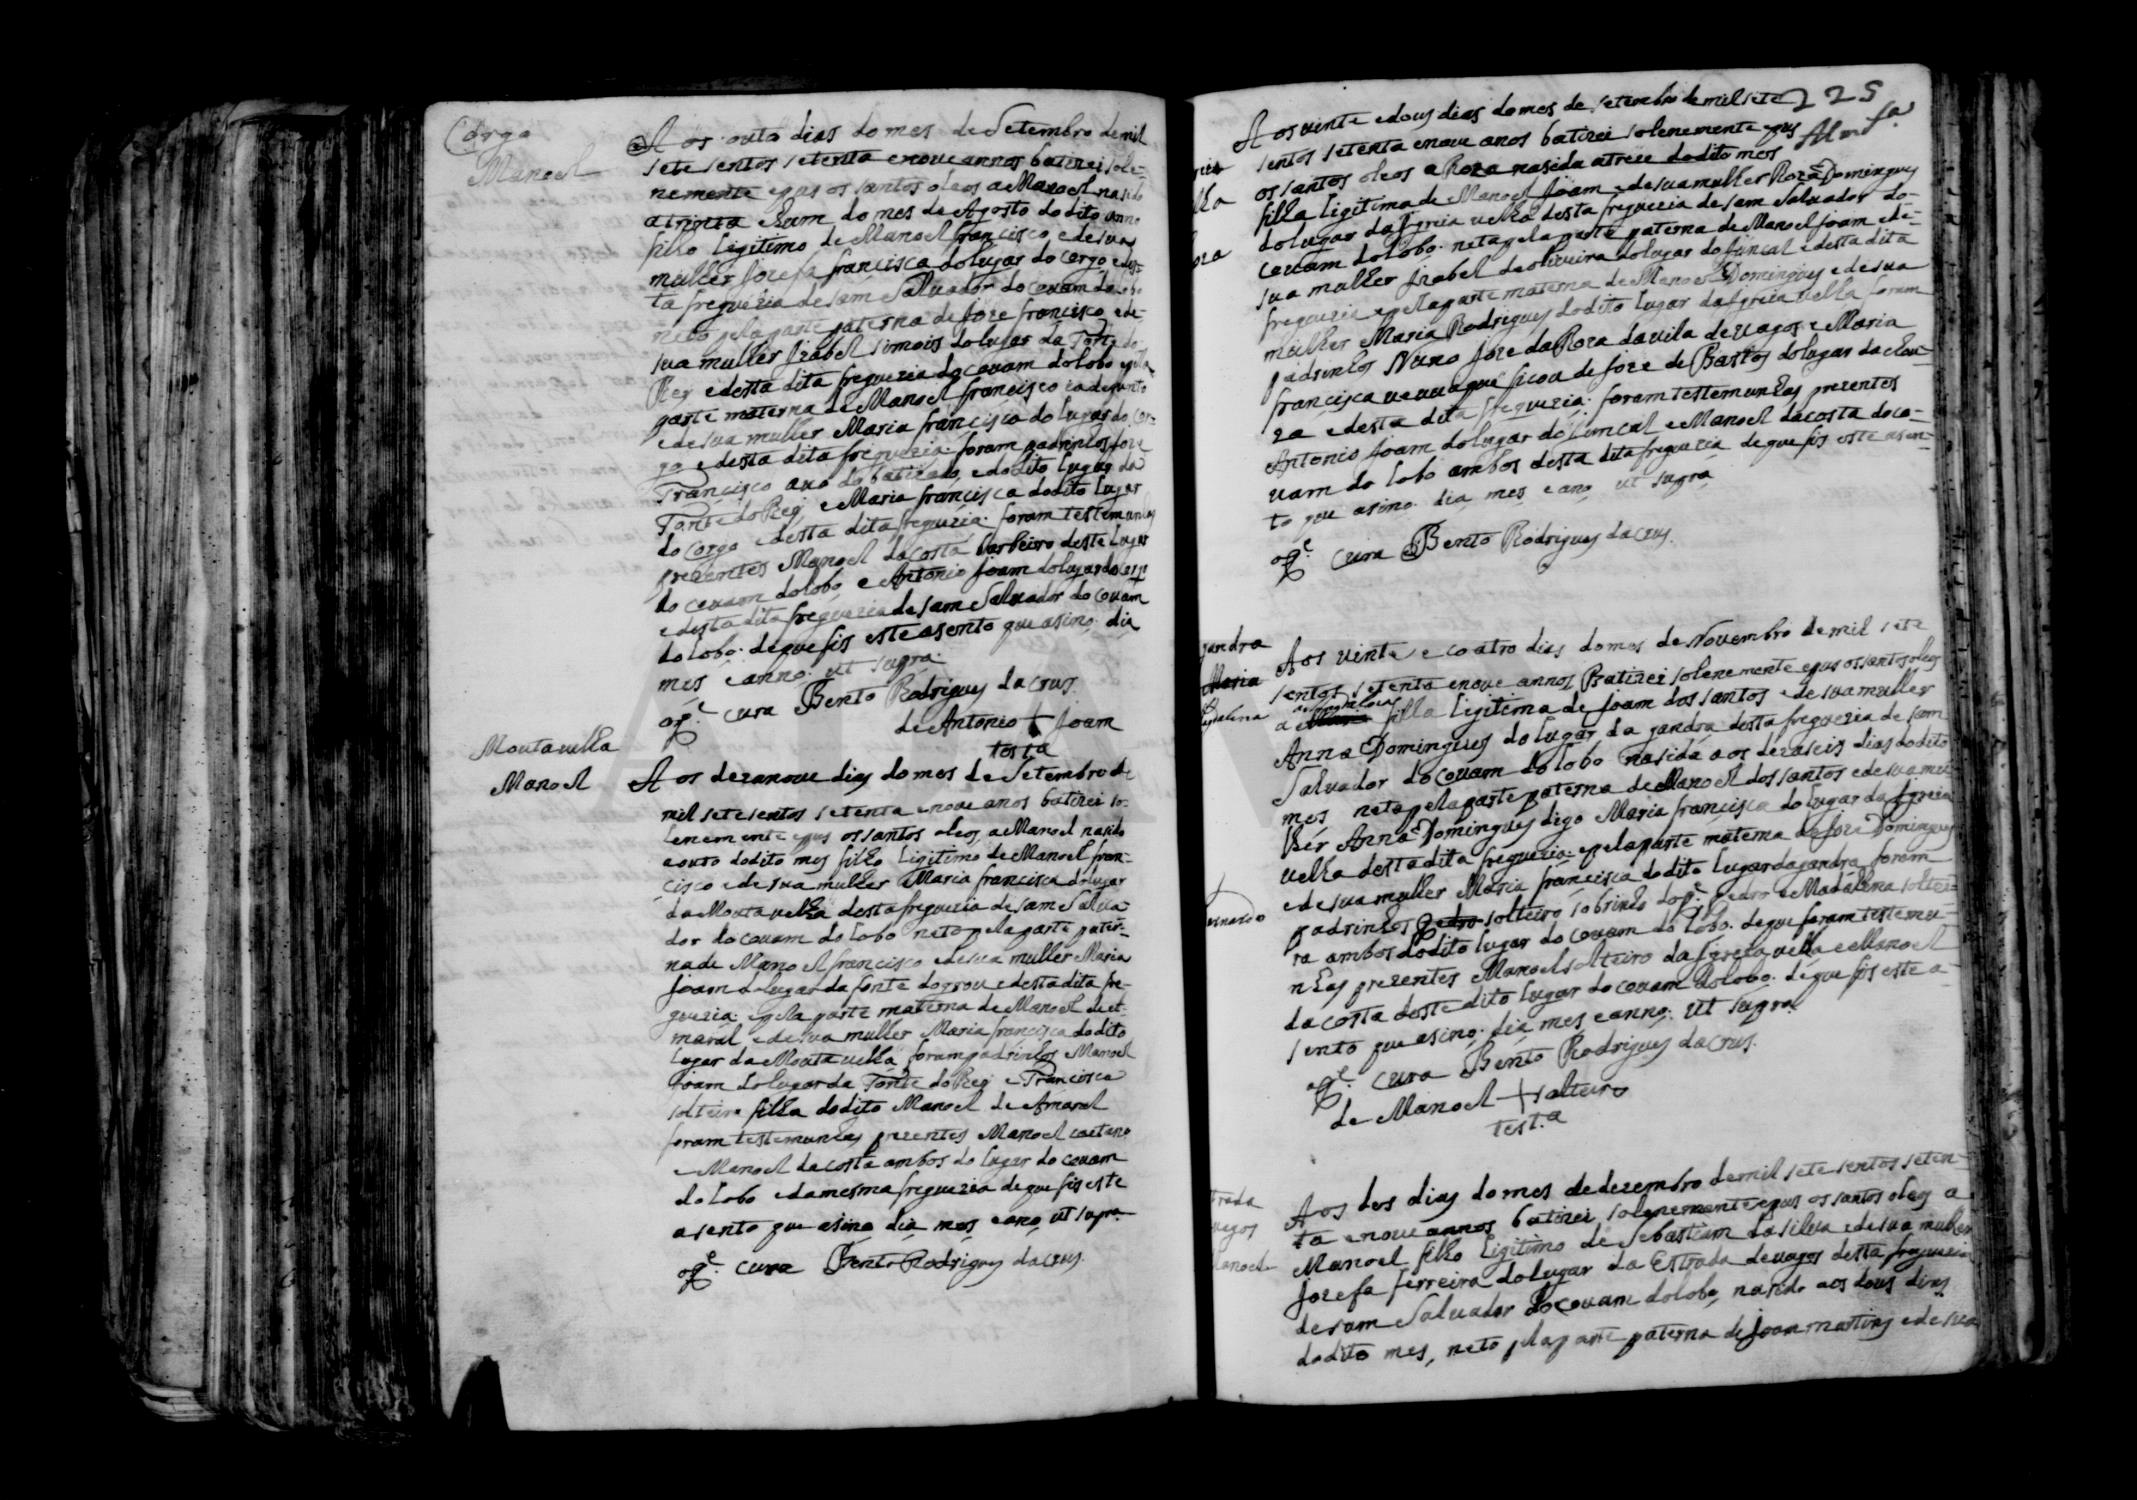 Corgo
Manoel
Aos outo dias do mes de Setembro de mil
sete sentos setenta e nove annos batizei sole-
nemente e pus os santos oleos a Manoel nasido
a trinta e hum do mes de Agosto do dito anno
filho legitimo de Manoel francisco e de sua
mulher Jozefa francisca do lugar do Corgo e des-
ta freguezia de sam Salvador do covam do lobo
neto pela parte paterna de Joze francisco e de
sua mulher Jzabel simois do lugar da Fonte do
Rey e desta dita freguezia do covam do lobo e pella
parte materna de Manoel francisco ia defunto
e de sua mulher Maria francisca do lugar do Cor-
go e desta dita freguezia: foram padrinhos Joze
Francisco avo do batizado, e do dito lugar da
Fonte do Rey e Maria francisca do dito lugar
do Corgo e desta dita freguezia: foram testemunhas
prezentes Manoel da costa barbeiro deste lugar
do covam do lobo e Antonio Joam do lugar do
e desta dita freguezia de sam Salvador do covam
do lobo: de que fis este asento que asino: dia
mes e anno: ut supra.
o Pe. cura Bento Rodrigues da crus.
de Antonio + Joam
testa
Moutavelha
Manoel
Aos dezanove dias do mes de Setembro de
mil sete sentos setenta e nove anos batizei so-
lenemente e pus os santos oleos, a Manoel nasido
a outo do dito mes filho legitimo de Manoel fran-
cisco e de sua mulher Maria francisca do lugar
da Mouta velha desta freguezia de sam Salva-
dor do covam do lobo neto pela parte pater-
na de Manoel francisco e de sua mulher Maria
Joam do lugar da fonte do grou e desta dita fre-
guezia: e pela parte materna de Manoel de A-
maral e de sua mulher Maria francisca do dito
lugar da Mouta velha foram padrinhos Manoel
Joam do lugar da Fonte do Rey e Francisca
solteira filha do dito Manoel de Amaral
foram testemunhas prezentes Manoel caetano
e Manoel da costa ambos do lugar do covam
do lobo e da mesma freguezia de que fis este
asento que asino dia mes e ano, ut supra.
o Pe. cura Bento Rodrigues da crus.
225
Aos vinte e dous dias do mes de setembro de mil sete
sentos setenta e nove anos batizei solenemente e pus
os santos oleos a Roza nasida a treze do dito mes
filha legitima de Manoel Joam e de sua mulher Roza Domingues
do lugar da Jgreia velha desta freguezia de sam Salvador do
covam do lobo: neta pela parte paterna de Manoel Joam e de
sua mulher Jzabel de oliveira do lugar do funcal e desta dita
freguezia e pella parte materna de Manoel Domingues e de sua
mulher Maria Rodrigues do dito lugar da Jgreia velha foram
padrinhos Nuno Joze da Roza da vila de vagos e Maria
francisca veuva que ficou de Joze de Bastos do lugar da chou-
za e desta dita freguezia: foram testemunhas prezentes
Antonio Joam do lugar do funcal e Manoel da costa do co-
vam do lobo ambos desta dita freguezia de que fis este asen-
to que asino. dia mes e ano ut supra
o Pe. cura Bento Rodrigues da crus.
gandra
Maria
Aos vinte e coatro dias do mes de Novembro de mil sete
sentos setenta e nove annos Batizei solenemente e pus os santos oleos
a Magdalena filha legitima de Joam dos santos e de sua mulher
Anna Domingues do lugar da gandra desta freguezia de sam
Salvador do covam do lobo nasida aos dezaseis dias do dito
mes neta pela parte paterna de Manoel dos santos e de sua mu-
lher Anna Domingues digo Maria francisca do lugar da Jgreia
velha desta dita freguezia: e pela parte materna de Joze Domingues
e de sua mulher Maria francisca do dito lugar da gandra foram
padrinhos Pedro solteiro sobrinho do Pe. Pedro e Madalena soltei-
ra ambos do dito lugar do covam do lobo: de que foram testemu-
nhas prezentes Manoel solteiro da Jgreia velha e Manoel
da costa deste dito lugar do covam do lobo: de que fis este a-
sento que asino: dia mes e anno: ut supra.
o Pe. cura Bento Rodrigues da crus.
de Manoel + solteiro
test.a
Aos dos dias do mes de dezembro de mil sete sentos seten-
ta e nove annos batizei solenemente e pus os santos oleos a
Manoel filho legitimo de Sebastiam da silva e de sua mulher
Jozefa Ferreira do lugar da Estrada de vagos desta freguezia
de sam Salvador do covam do lobo, nasido aos dous dias
do dito mes, neto pela parte paterna de Joam martins e de sua